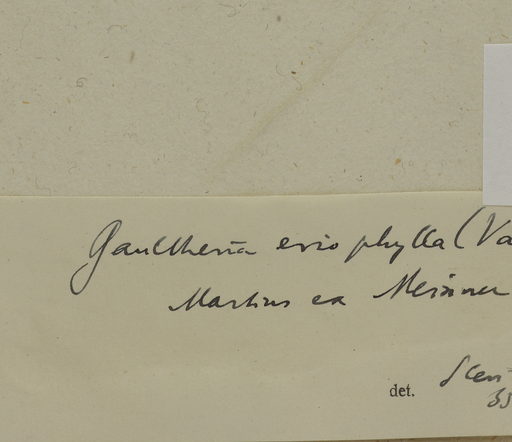 Gaultheria eriophylla (Va
Martius ex Meissner
det. Slen